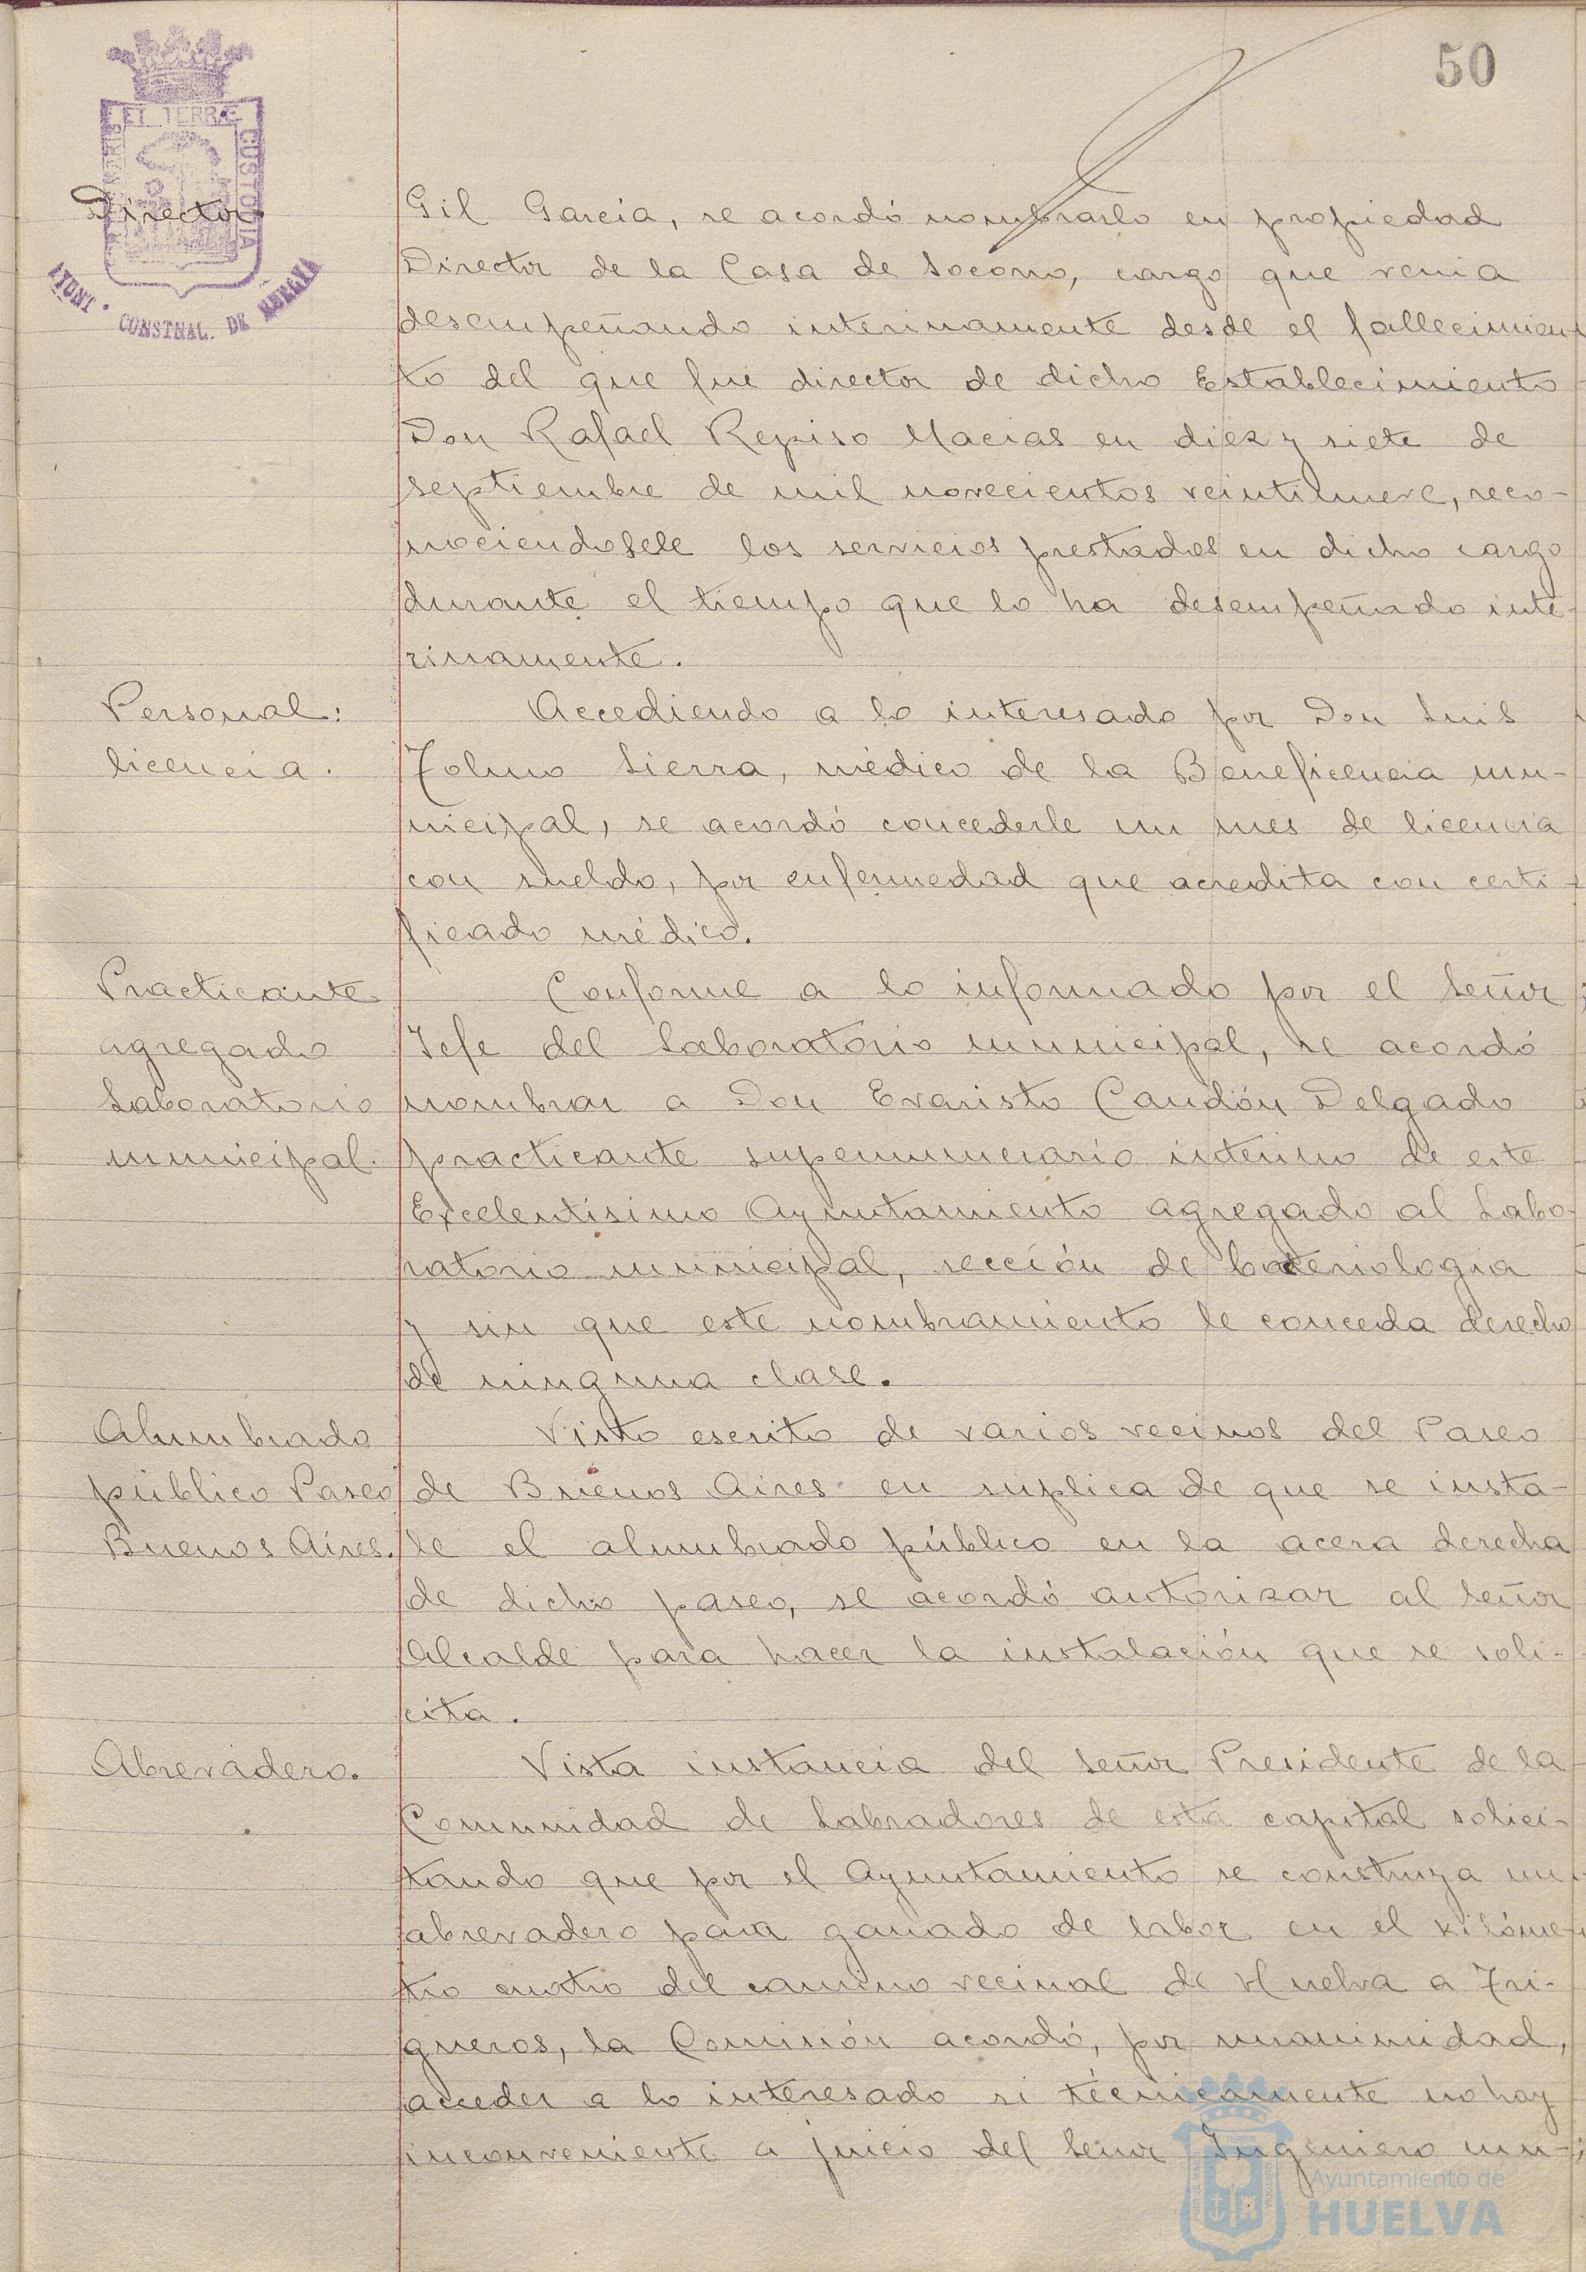 50
ET TERRÆ
CUSTODIA
AYUNT. CONSTNAL. DE HUELVA
Director.
Gil García, se acordó nombrarlo en propiedad
Director de la Casa de Socorro, cargo que venia
desempeñando interinamente desde el fallecimien
to del que fué director de dicho Establecimiento
Don Rafael Repiso Macias en diez y siete de
septiembre de mil novecientos veintinueve, reco-
nociendosele los servicios prestados en dicho cargo
durante el tiempo que lo ha desempeñado inte-
rinamente.
Personal:
licencia.
Accediendo a lo interesado por Don Luis
Tolmo Sierra, médico de la Beneficencia mu-
nicipal, se acordó concederle un mes de licencia
con sueldo, por enfermedad que acredita con certi-
ficado médico.
Practicante
agregado
Laboratorio
municipal.
Conforme a lo informado por el Señor
Jefe del Laboratorio municipal, se acordó
nombrar a Don Evaristo Candón Delgado
practicante supernumerario interino de este
Excelentísimo Ayuntamiento agregado al Labo-
ratorio municipal, sección de bacteriologia
y sin que este nombramiento le conceda derecho
de ninguna clase.
Alumbrado
público Paseo
Buenos Aires.
Visto escrito de varios vecinos del Paseo
de Buenos Aires en suplica de que se insta-
le el alumbrado público en la acera derecha
de dicho paseo, se acordó autorizar al Señor
Alcalde para hacer la instalación que se soli-
cita.
Abrevadero.
Vista instancia del Señor Presidente de la
Comunidad de Labradores de esta capital solici-
tando que por el Ayuntamiento se construya un
abrevadero para ganado de labor en el kilóme-
tro cuatro del camino vecinal de Huelva a Tri-
gueros, la Comisión acordó, por unanimidad,
acceder a lo interesado si técnicamente no hay
inconveniente a juicio del Señor Ingeniero mu-
Ayuntamiento de
HUELVA